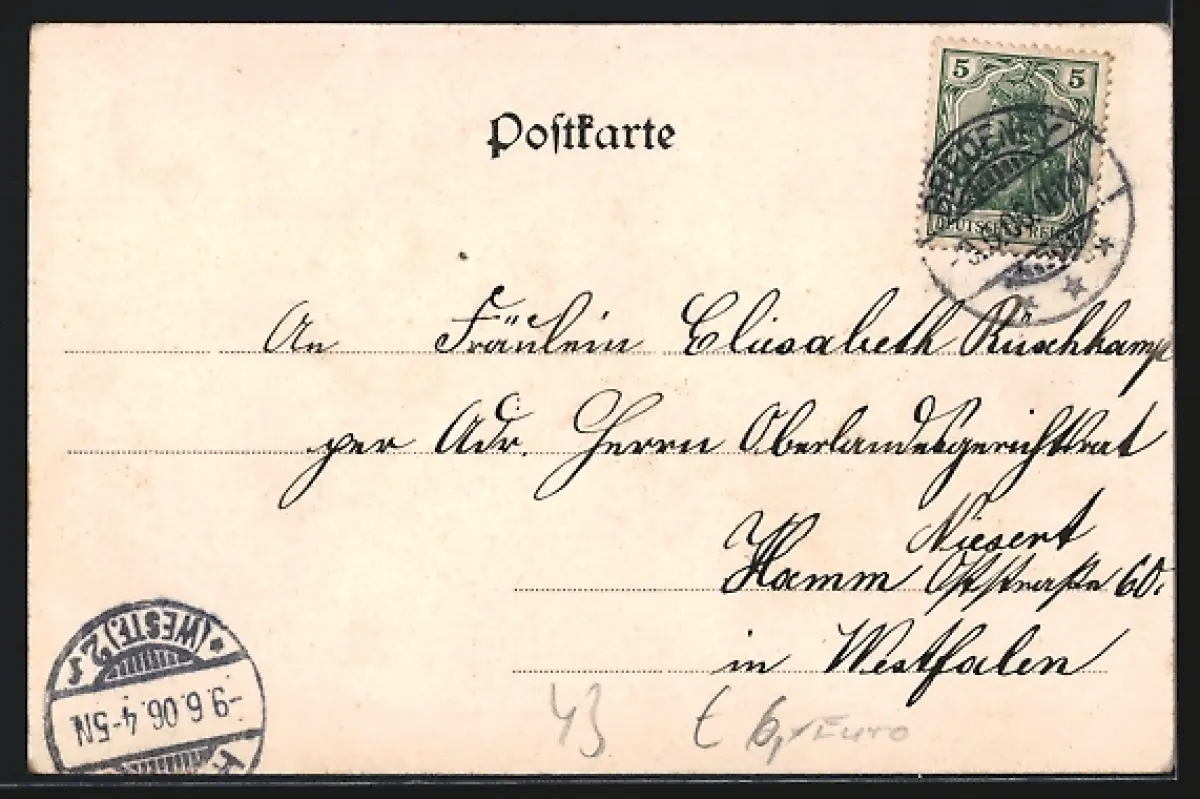 5 5
DEUTSCHES REICH
BREDENEY
Postkarte
An Fräulein Elisabeth Ruschkamp
per Adr. Herrn Oberlandesgerichtsrat
Niesert
Hamm Oststraße 60.
in Westfalen
(WESTF.) 2
-9.6.06.4-5N
6,- Euro